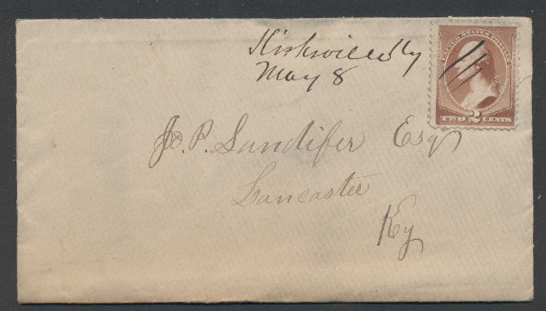 Kirksville Ky
May 8
UNITED STATES POSTAGE
TWO 2 CENTS
Jo. P. Sandifer Esq
Lancaster
Ky